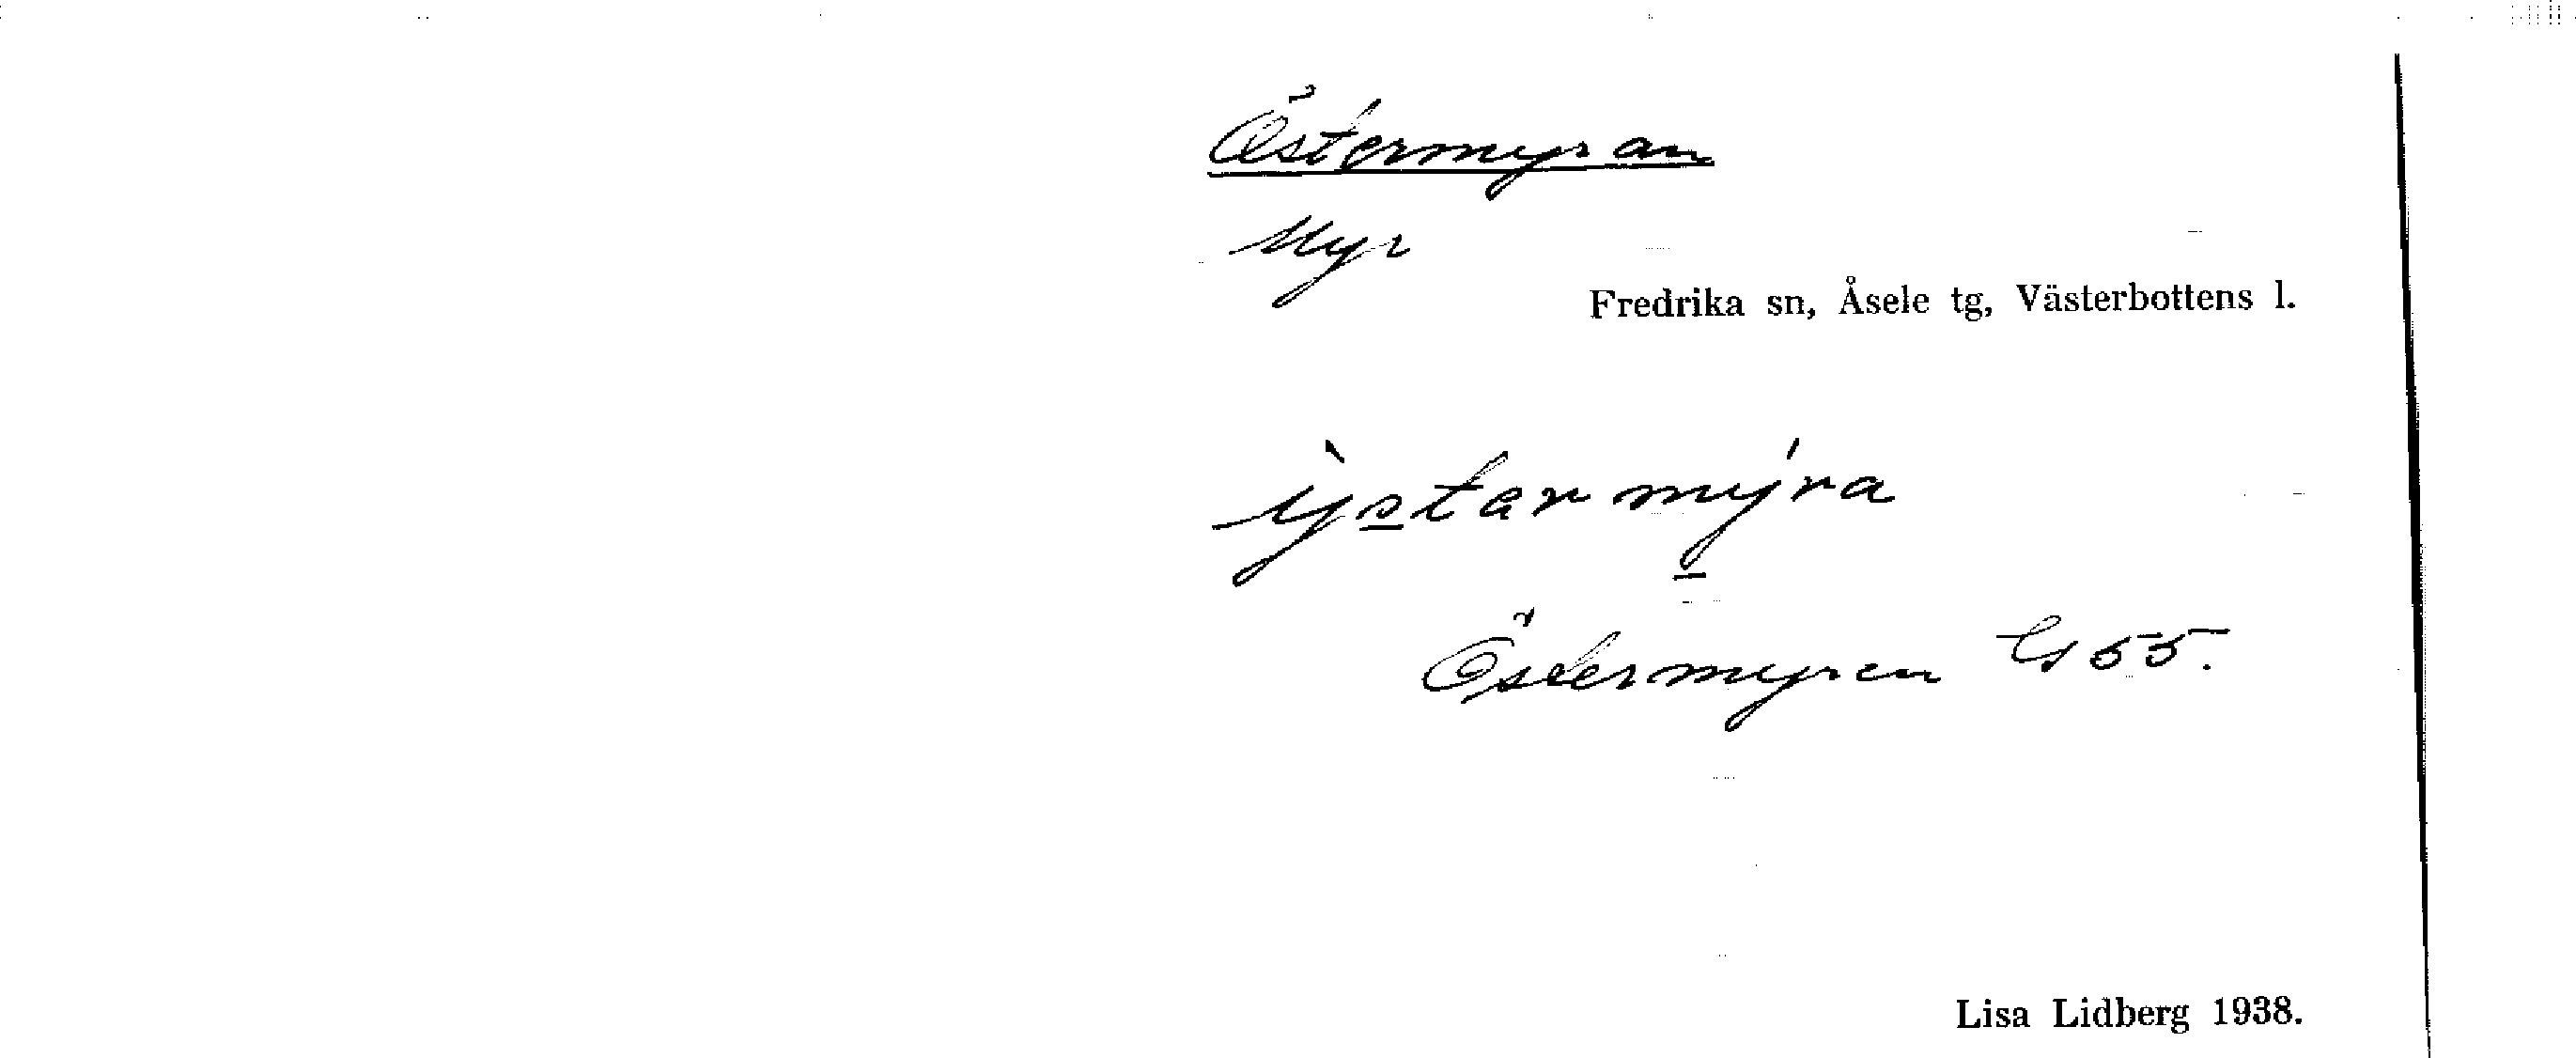 Östermyran
Myr
Fredrika sn, Åsele tg, Västerbottens l.
ỳstarmýra
Östermyren Gs 55.
Lisa Lidberg 1938.